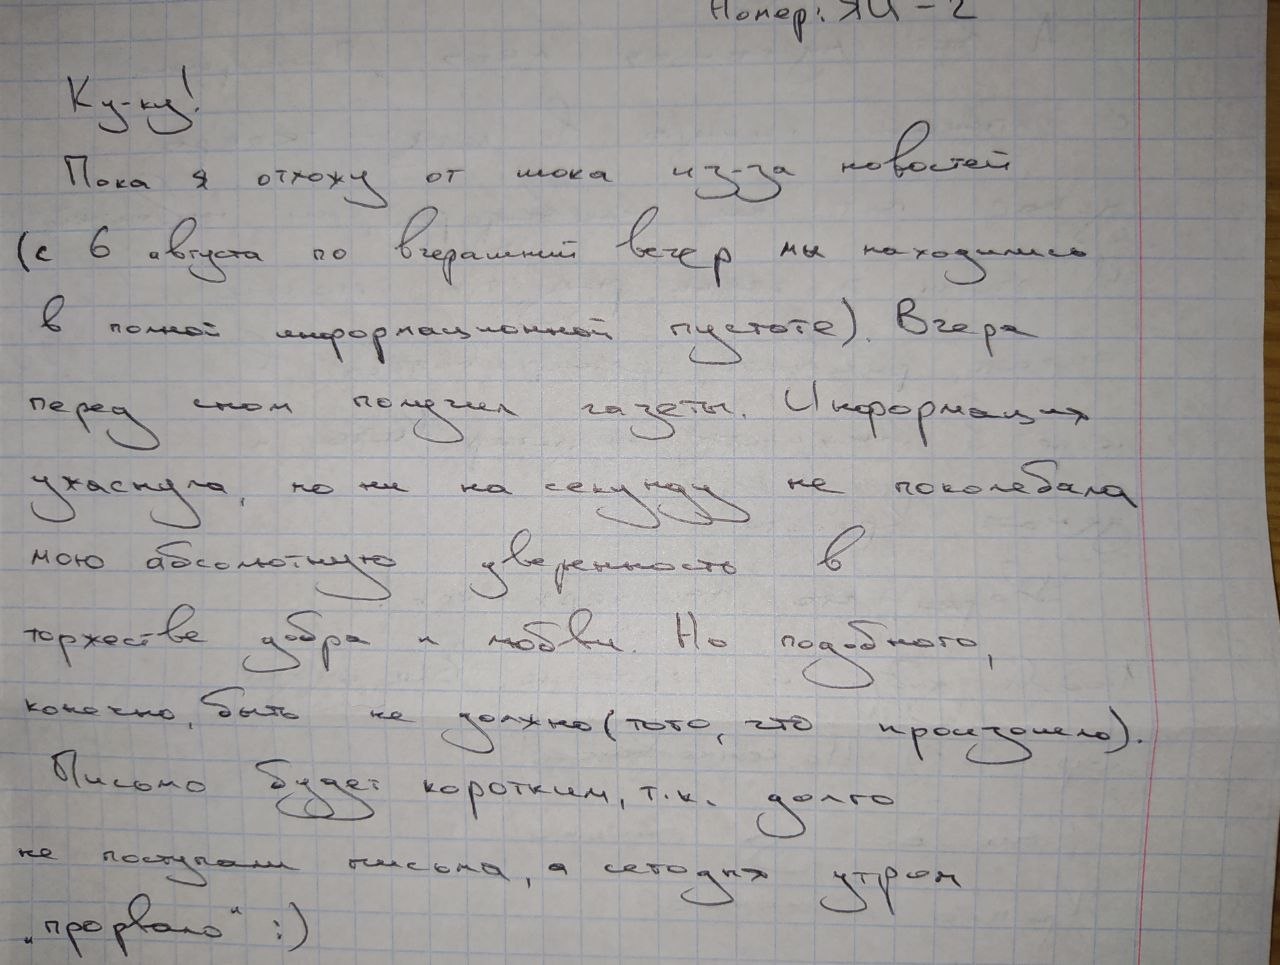 Номер: ЯЦ - 2
Ку-ку!
Пока я отхожу от шока из-за новостей
(с 6 августа по вчерашний вечер мы находились
в полной информационной пустоте). Вчера
перед сном получил газеты. Информация
ужаснула, но ни на секунду не поколебала
мою абсолютную уверенность в
торжестве добра и любви. Но подобного,
конечно, быть не должно (того, что произошло).
Письмо будет коротким, т.к. долго
не поступали письма, а сегодня утром
„прорвало“ :)